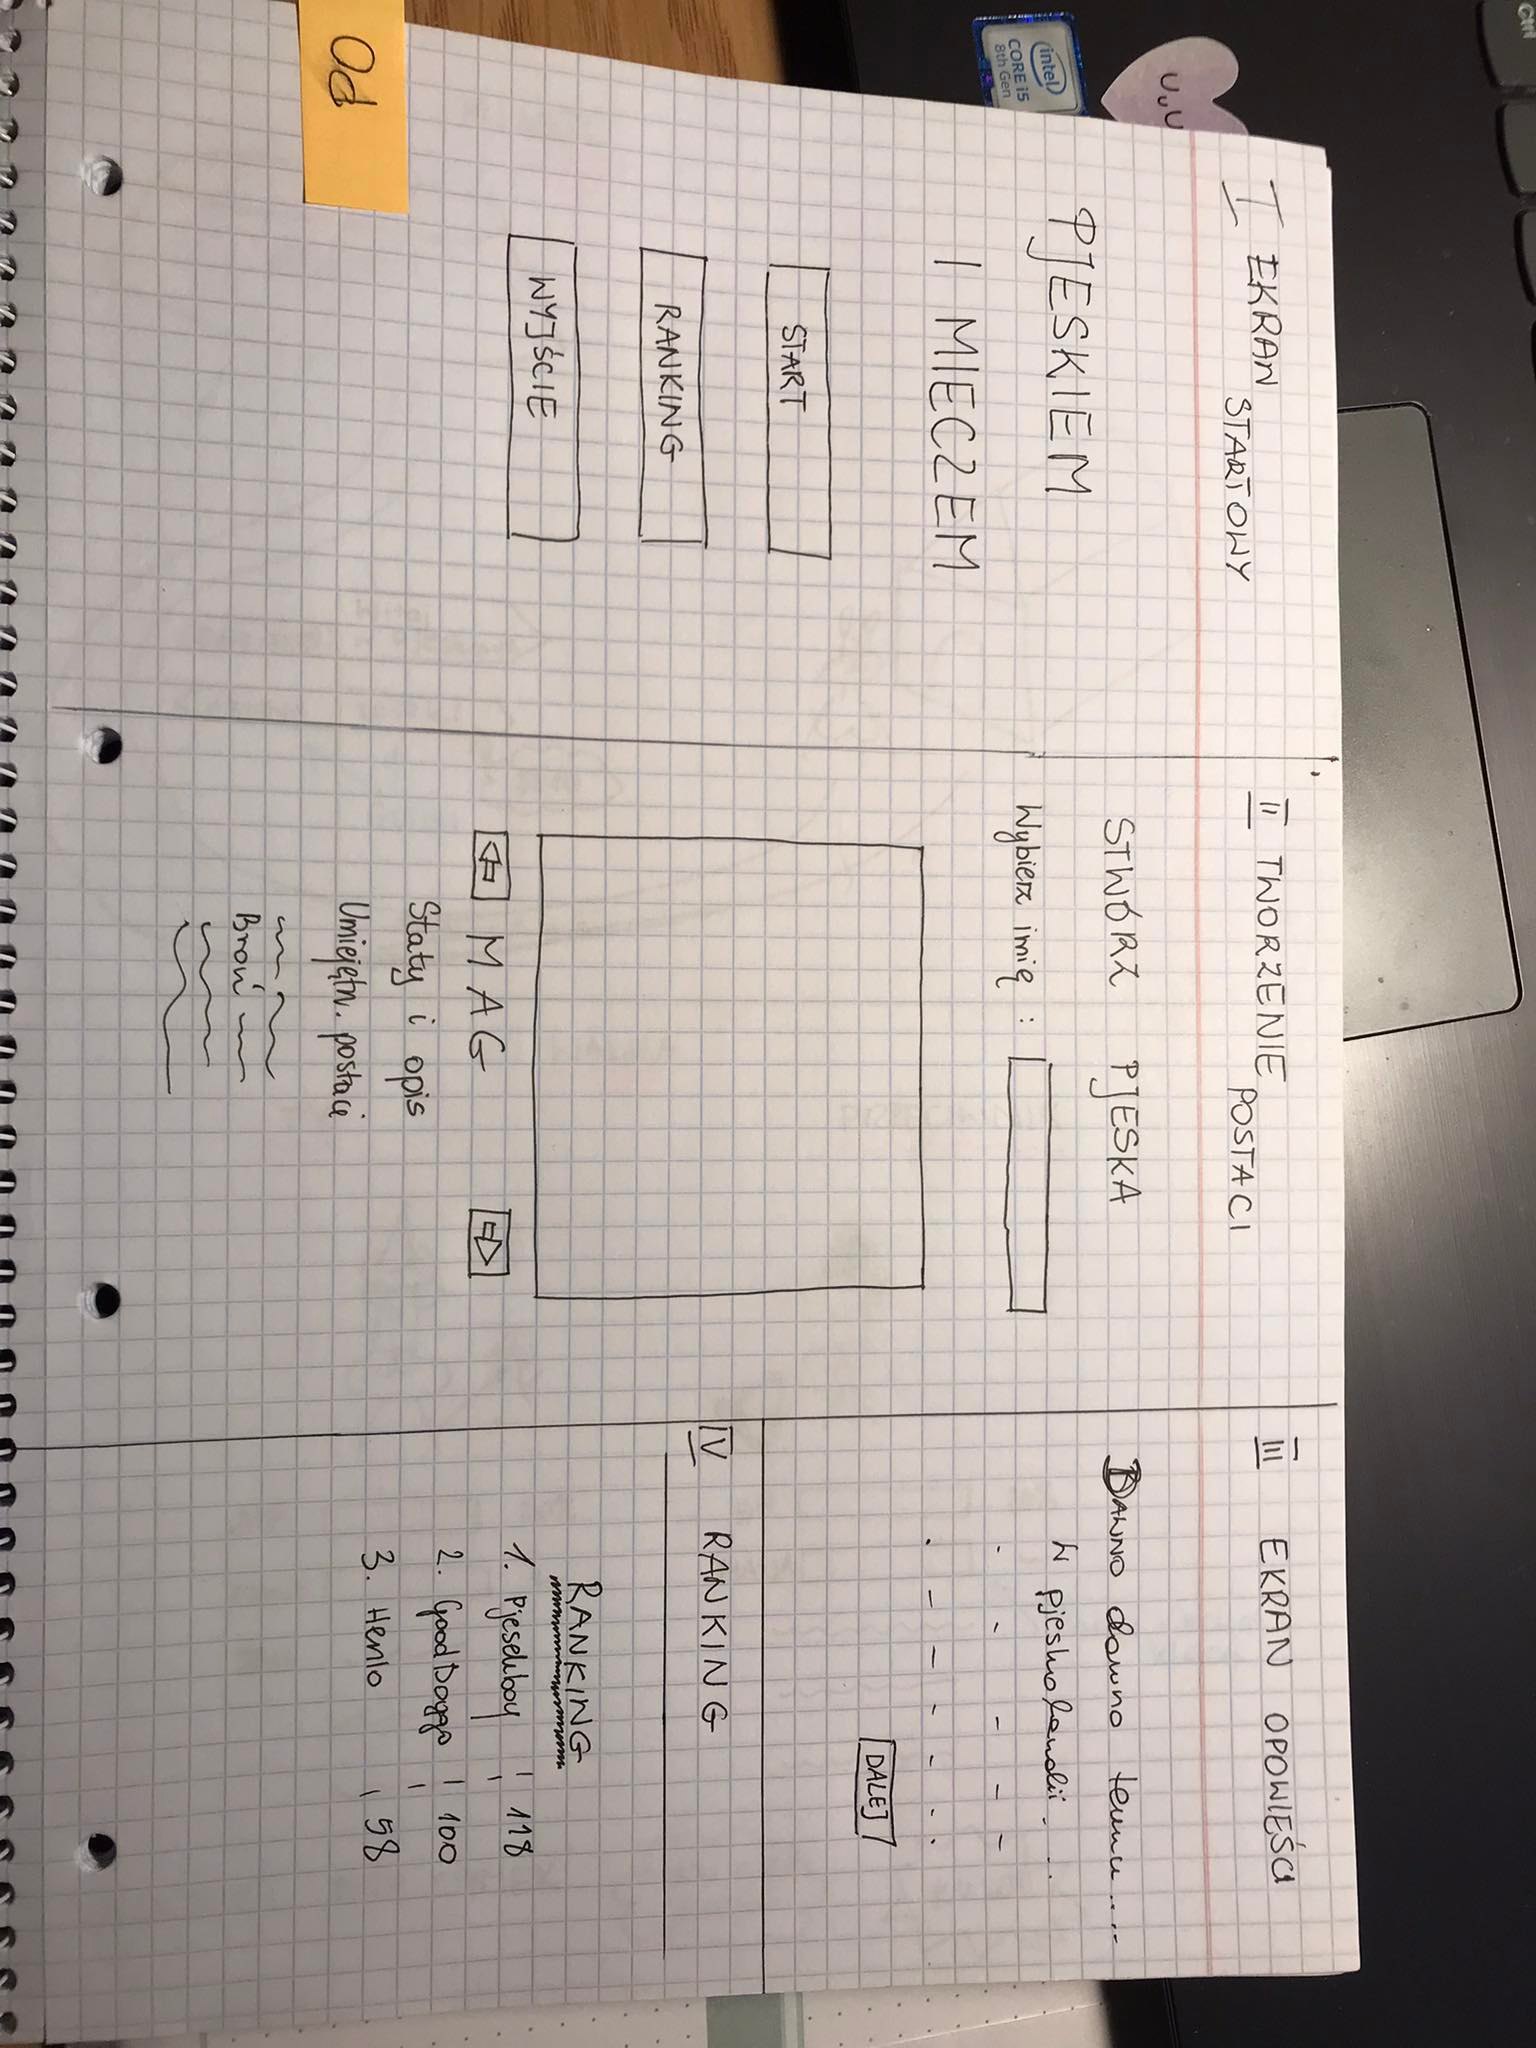 Ctrl
intel
CORE i5
8th Gen
UuU
Od
I EKRAN
STARTOWY
PJESKIEM
I MIECZEM
START
RANKING
WYJŚCIE
II TWORZENIE
POSTACI
STWÓRZ PJESKA
Wybierz imię :
MAG
Staty i opis
Umiejętn. postaci
Broń
III EKRAN OPOWIEŚCI
DAWNO dawno temu....
W pjeskolandii. . .
DALEJ
IV RANKING
RANKING
1. Pjesekboy ¦ 118
2. GoodDoggo ¦ 100
3. Henlo ¦ 58